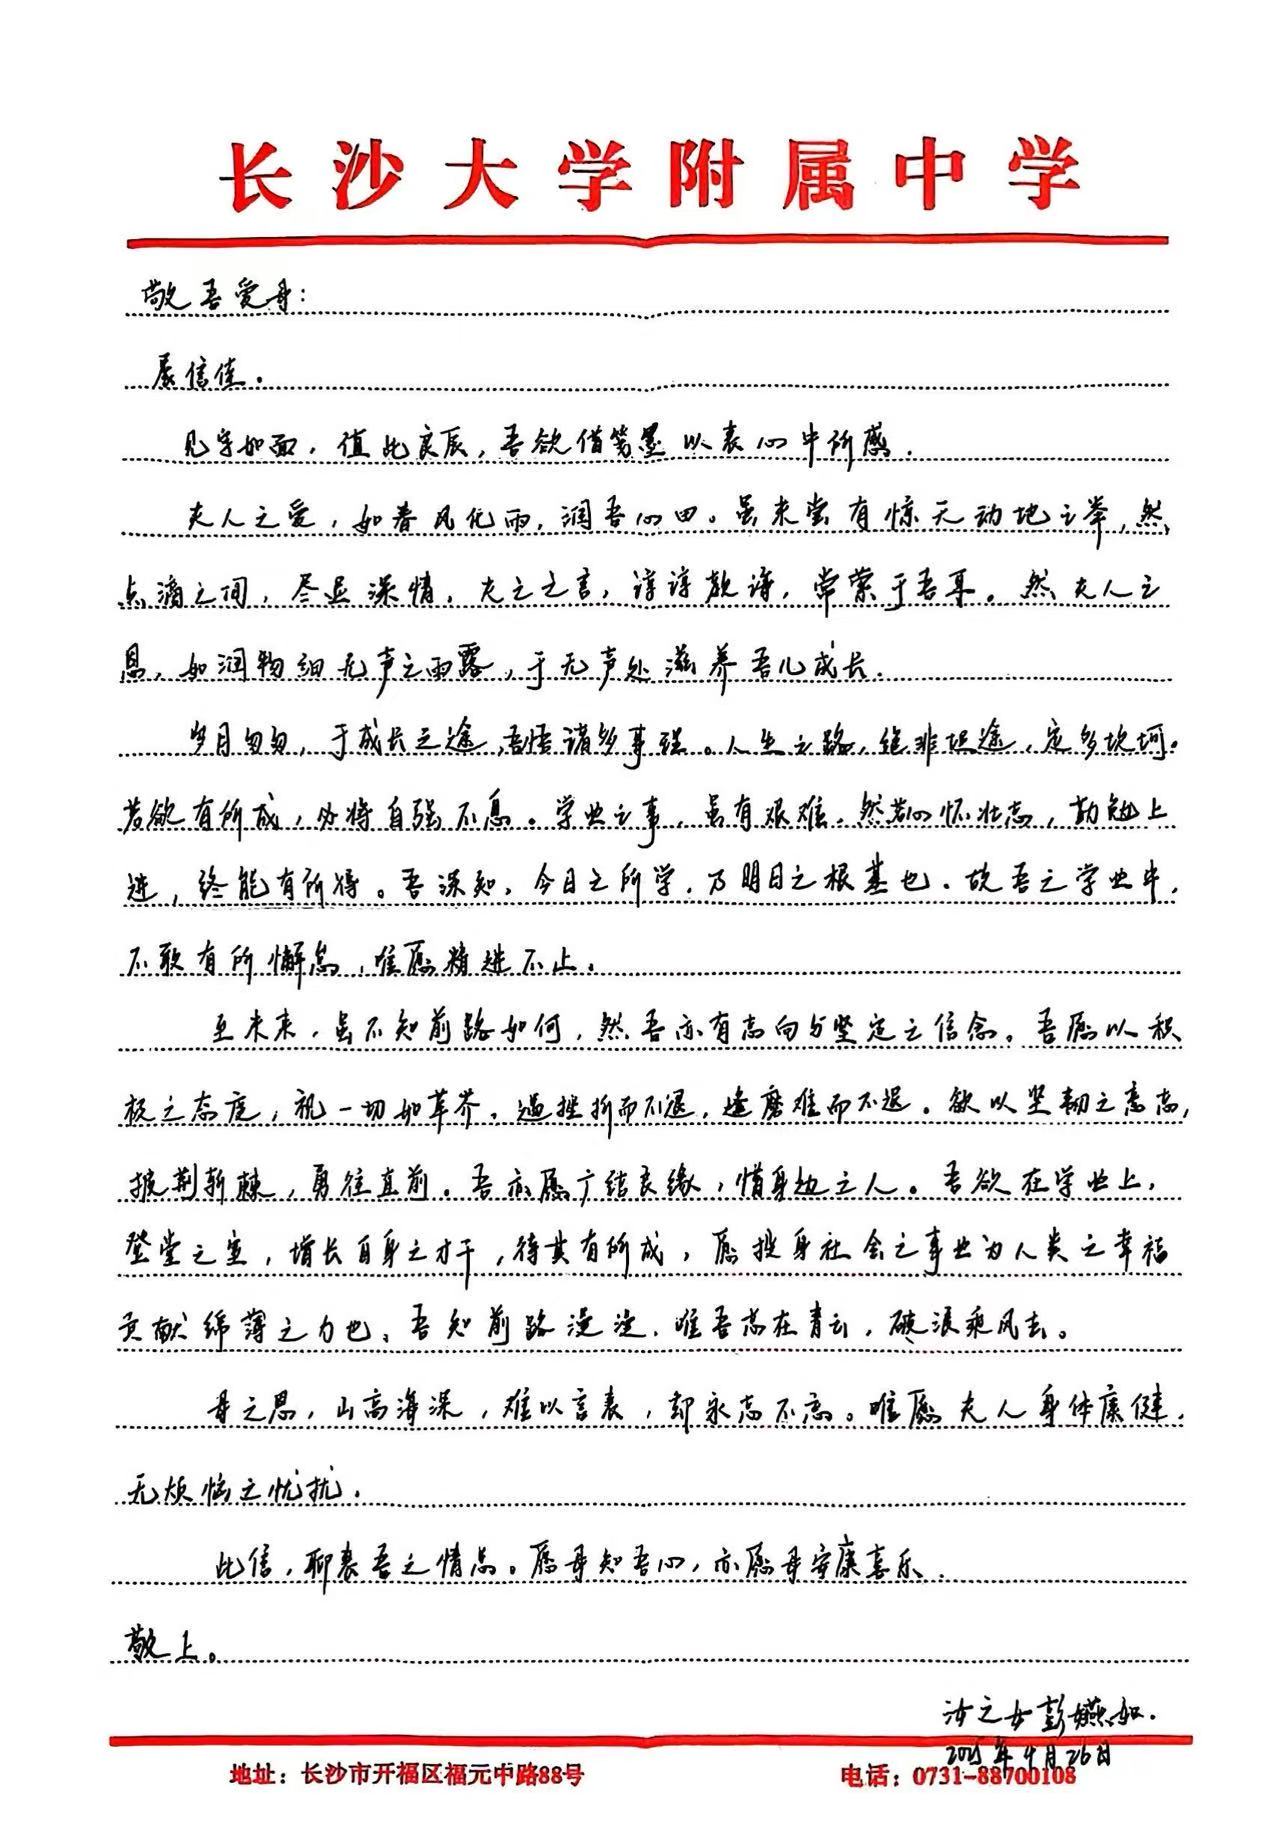 长沙大学附属中学
敬吾爱母：
展信佳。
见字如面，值此良辰，吾欲借笔墨以表心中所感。
夫人之爱，如春风化雨，润吾心田。虽未尝有惊天动地之举，然
点滴之间，尽显深情。夫之之言，谆谆教诲，常萦于吾耳。然夫人之
恩，如润物细无声之雨露，于无声处滋养吾儿成长。
岁月匆匆，于成长之途，吾悟诸多事理。人生之路，绝非坦途，定多坎坷。
若欲有所成，必将自强不息。学业之事，虽有艰难，然若心怀壮志，勤勉上
进，终能有所得。吾深知，今日之所学，乃明日之根基也。故吾之学业中，
不敢有所懈怠，唯愿精进不止。
至未来，虽不知前路如何，然吾亦有志向与坚定之信念。吾愿以积
极之态度，视一切如草芥，遇挫折而不退，逢磨难而不退。欲以坚韧之意志，
披荆斩棘，勇往直前。吾亦愿广结良缘，惜身边之人。吾欲在学业上，
登堂之室，增长自身之才干，待其有所成，愿投身社会之事业为人类之幸福
贡献绵薄之力也。吾知前路漫漫，唯吾志在青云，破浪乘风去。
母之恩，山高海深，难以言表，却永志不忘。唯愿夫人身体康健，
无烦恼之忧扰。
此信，聊表吾之情思。愿母知吾心，亦愿母安康喜乐。
敬上。
汝之女彭嬿如．
2025年4月26日
地址：长沙市开福区福元中路88号 电话：0731-88700108